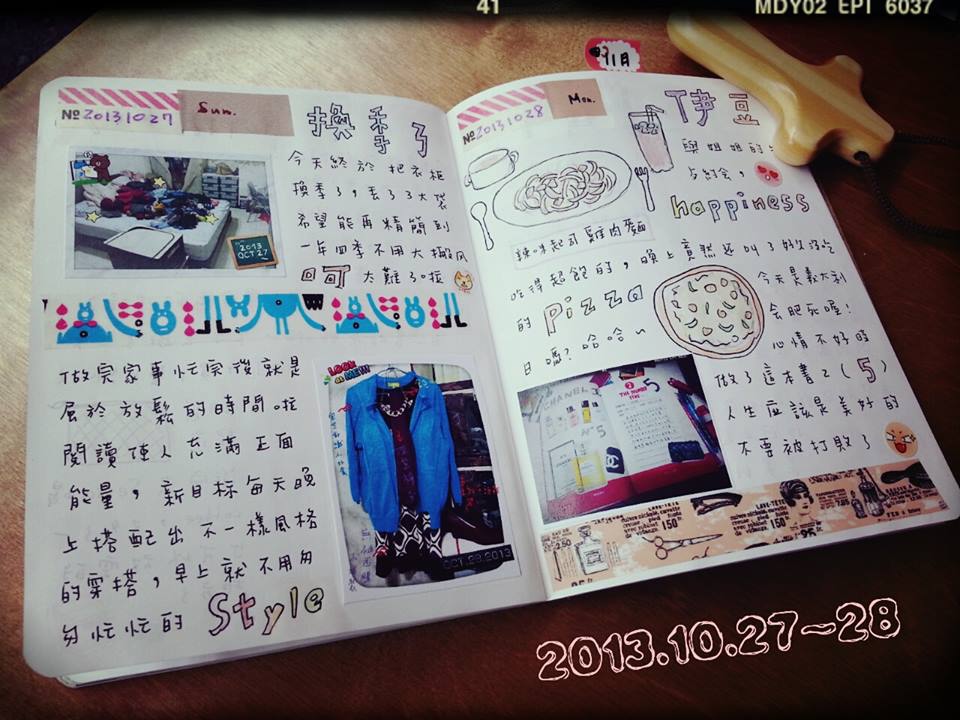 41
MDY02 EPT 6037
11月
№2013.10.27
Sun.
換季了
今天終於把衣櫃
換季了,丟了3大袋
希望能再精簡到
一年四季不用大搬風
呵 太難了啦
2013
OCT 27
做完家事忙完後就是
屬於放鬆的時間啦
閱讀使人充滿正面
能量,新目标每天晚
上搭配出不一樣風格
的穿搭,早上就不用匆
匆忙忙的 Style
LOOK
at ME!!!
OCT.28.2013
№2013.10.28
Mon.
伊豆
與姐姐的
約會,
happiness
辣味起司雞肉麵
吃得超飽的,晚上竟然还叫了好久沒吃
的 Pizza 今天是義大利
日嗎?哈哈~ 会肥死喔!
心情不好時
做了這本書之(5)
人生应該是美好的
不要被打敗了
CHANEL
5
LAVE-TÊTE
150
150
2013.10.27~28